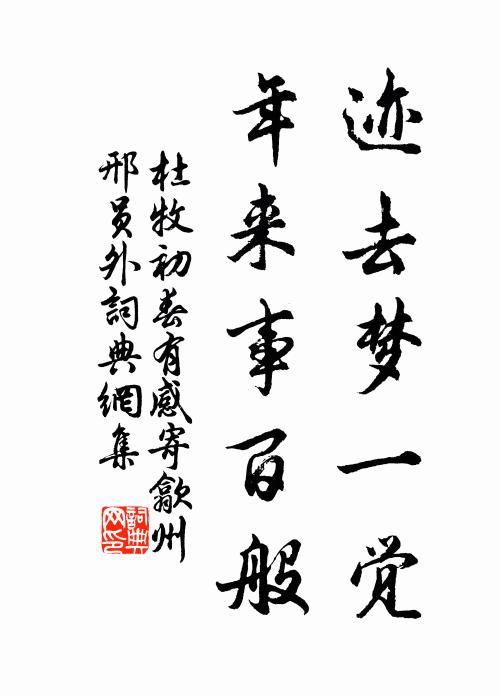 迹去梦一觉
年来事百般
杜牧初春有感寄歙州
邢员外詞典網集
詞典网印